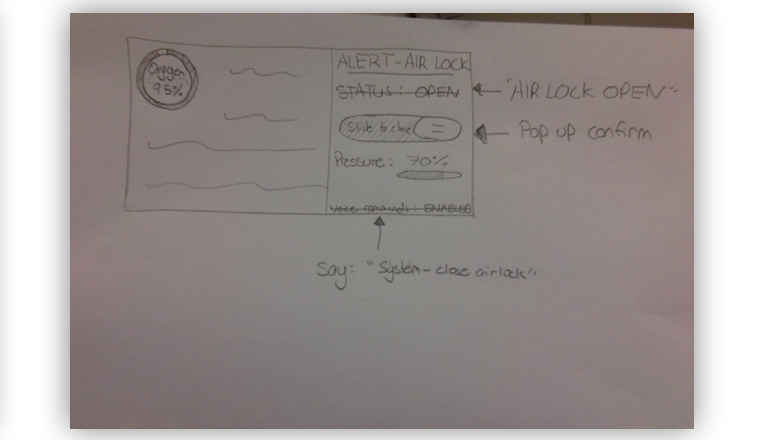 Oxygen
95%
ALERT-AIR LOCK
STATUS: OPEN
"AIR LOCK OPEN"
Slide to close
Pop up confirm
Pressure: 70%
voice comands: ENABLED
Say: "System-close airlock"